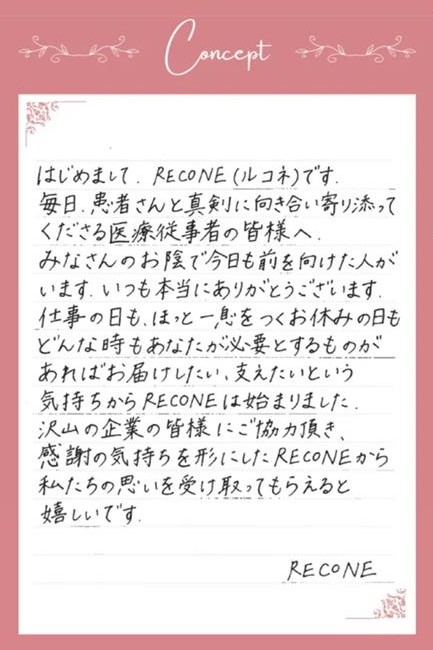 Concept
はじめまして. RECONE(ルコネ)です.
毎日.患者さんと真剣に向き合い寄り添って
くださる医療従事者の皆様へ.
みなさんのお陰で今日も前を向けた人が
います.いつも本当にありがとうございます.
仕事の日も、ほっと一息をつくお休みの日も
どんな時もあなたが必要とするものが
あればお届けしたい、支えたいという
気持ちからRECONEは始まりました.
沢山の企業の皆様にご協力頂き、
感謝の気持ちを形にしたRECONEから
私たちの思いを受け取ってもらえると
嬉しいです.
RECONE